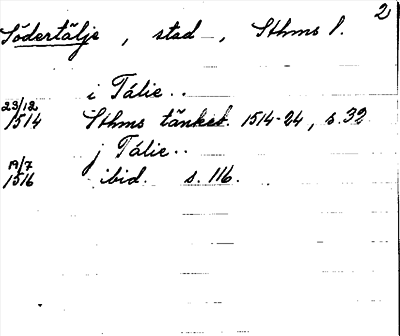 2
Södertälje, stad, Sthms l.
i Tälie..
23/12
1514 Sthms tänkeb. 1514-24, s. 32
j Tälie..
19/7
1516 ibid. s. 116.